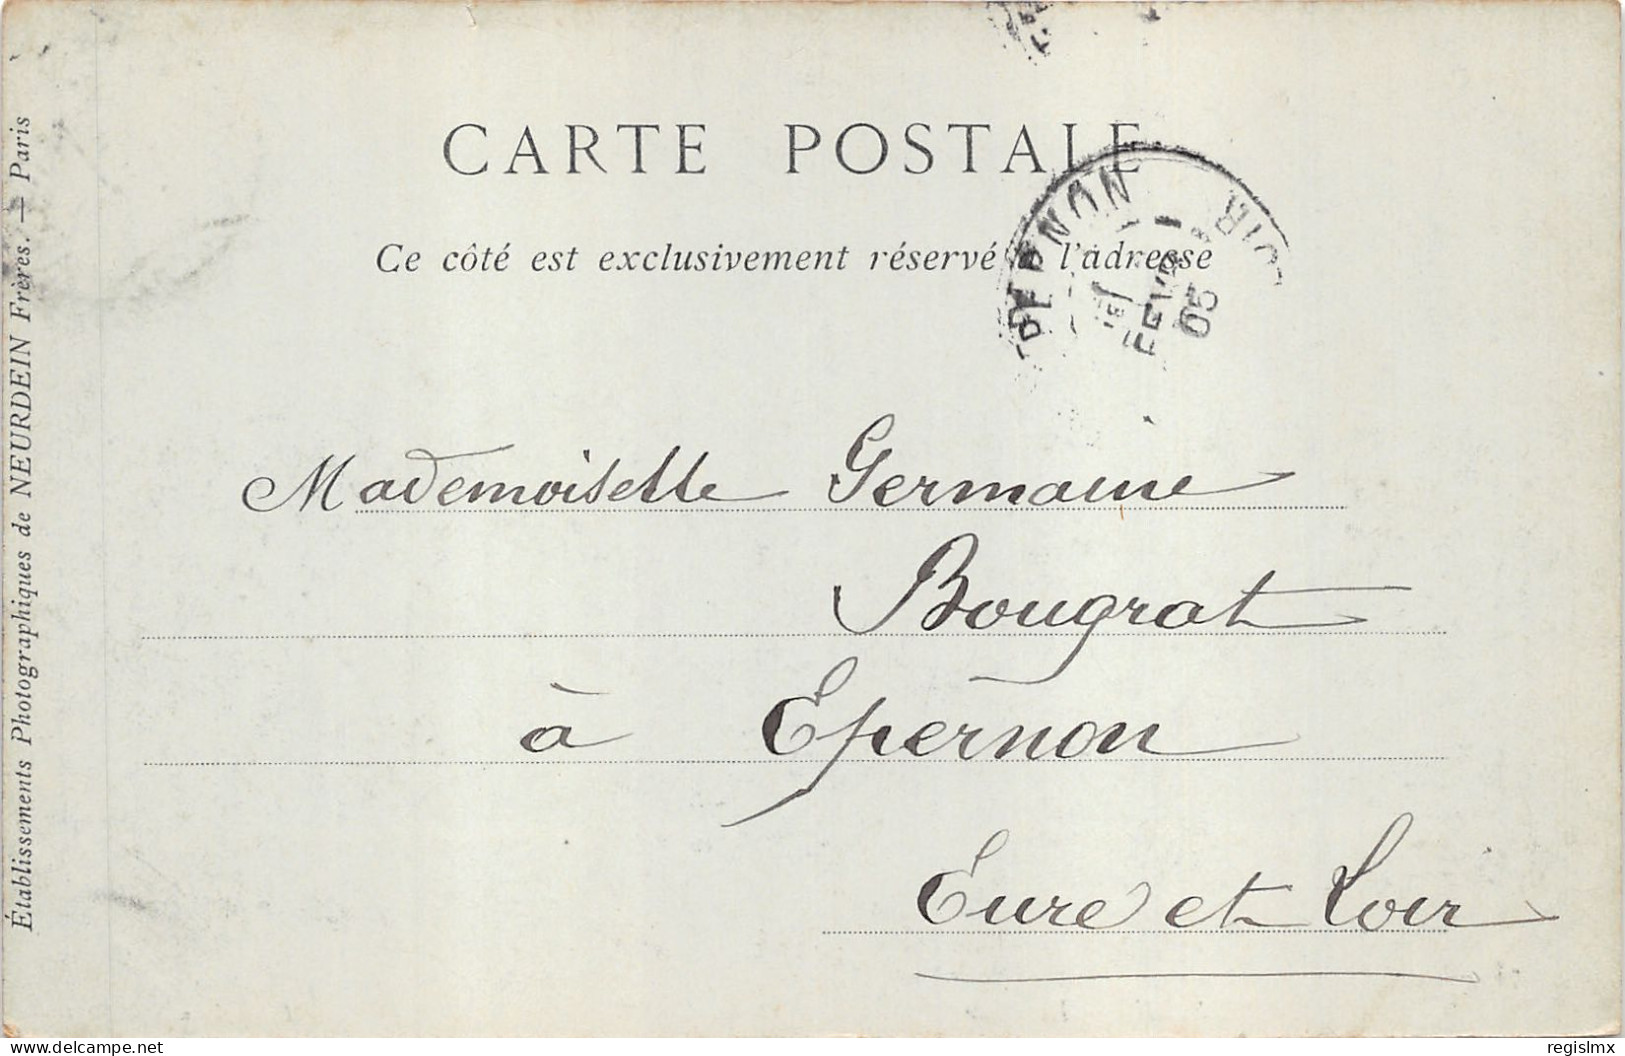 CARTE POSTALE
Ce côté est exclusivement réservé à l'adresse
EPERNON
FEVR
05
OIR
Mademoiselle Germaine
Bougrat
à Epernon
Eure et Loir
Établissements Photographiques de NEURDEIN Frères. — Paris
www.delcampe.net
regislmx